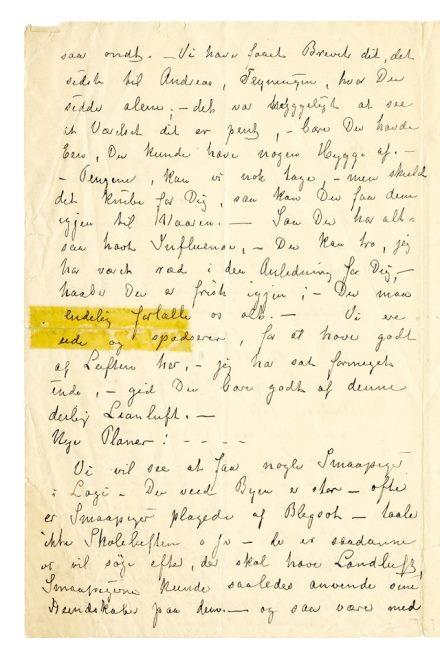 saa ondt. – Vi have faaet Brevet dit, det
sidste til Andreas, Tegningen, hvor Du
sidder alene; – det var hyggeligt at see
at Værelset dit er pent, – bare Du havde
Een, Du kunde have nogen Hygge af. –
– Pengene, kan vi nok tage, – men skuld
det knibe for Dig, saa kan Du faa dem
igjen til Vaaren. – Saa Du har alt-
saa havt Influensa, – Du kan tro, jeg
har været ræd i den Anledning for Dig, –
haaber Du er frisk igjen; – Du maa
endelig fortælle os alt. – Vi ere
ude og spadserer, for at have godt
af Luften her, – jeg har sat formeget
inde, – gid Du bare godt af denne
deilig Leanluft. –
Nye Planer: - - - -
Vi vil see at faa nogle Smaapiger
i Logi – Du veed Byen er stor – ofte
er Smaapiger plagede af Blegsot – taale
ikke Skoleluften o.s.v. – de er saadanne
vi vil söge efter, der skal have Landluft,
Smaapigerne kunde saaledes anvende sine
Kundskaber paa dem. – og saa være med